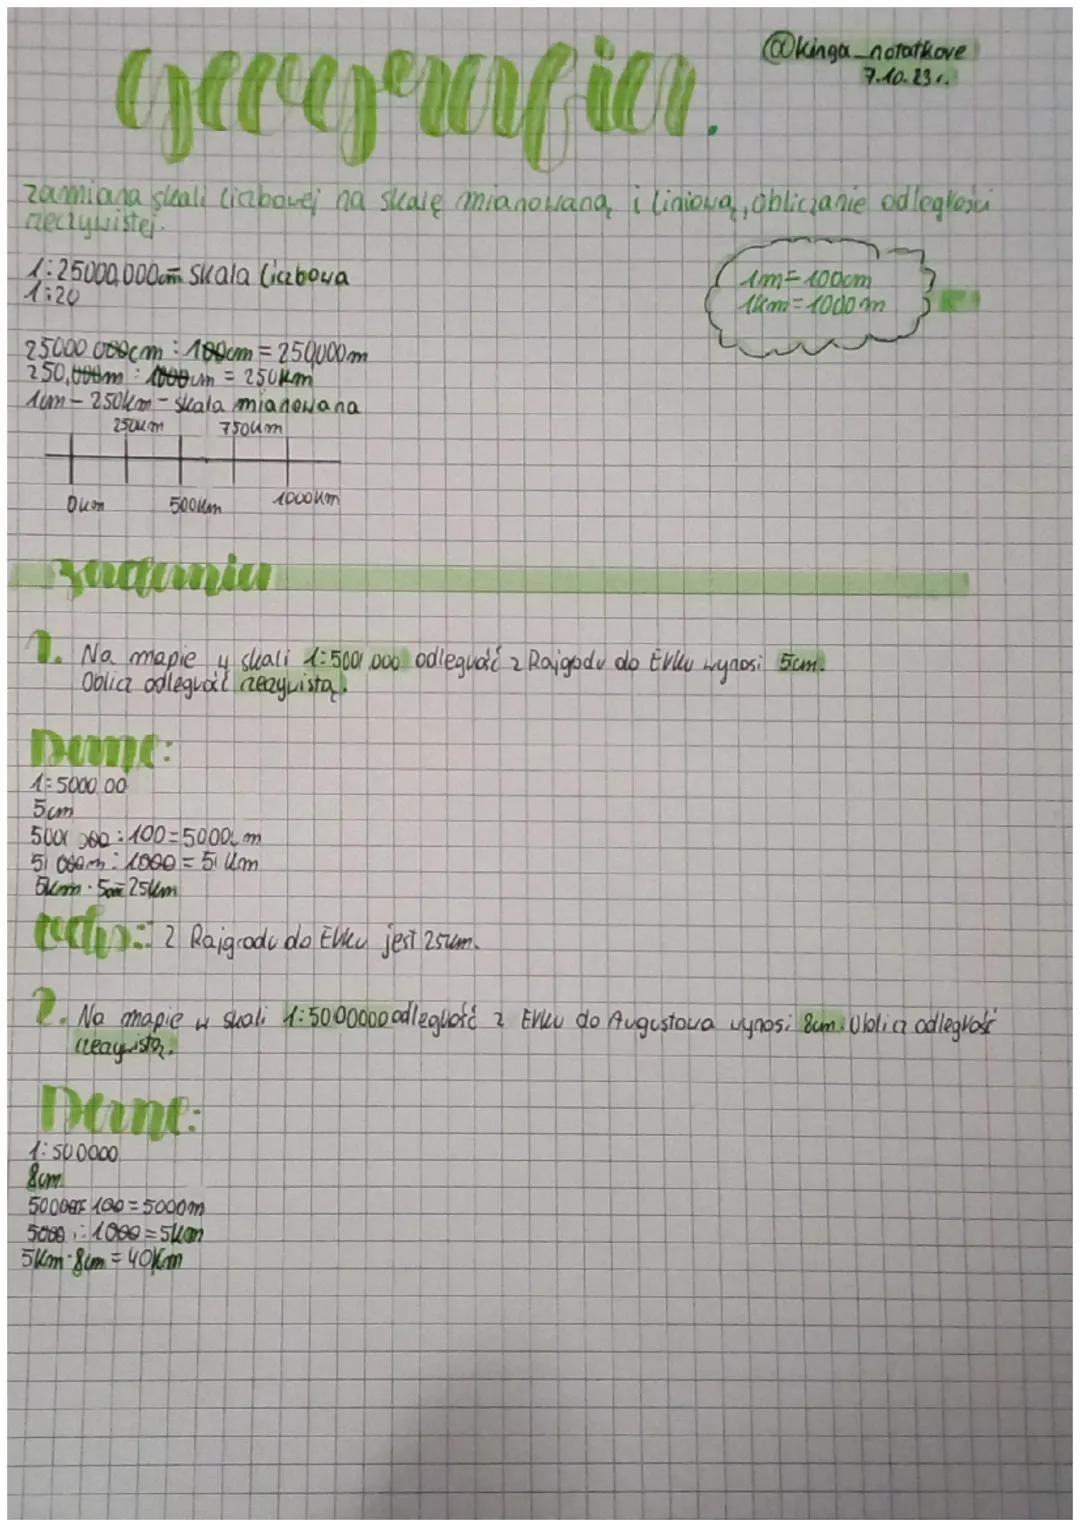 @kinga_notatkove
7.10.23r.
Geografia.
zamiana skali liczbowej na skalę mianowaną i liniową, obliczanie odległości
rzeczywistej.
1:25000000cm= skala liczbowa
1:20
1m=100cm
1km=1000m
25000 000cm : 100cm = 250000m
250,000m : 1000um = 250km
1cm - 250km - skala mianowana
250km 750km
0km 500km 1000km
zadania
1. Na mapie w skali 1:500 000 odległość z Rajgrodu do Ełku wynosi 5cm.
Oblicz odległość rzeczywistą.
Dane:
1:5000 00
5cm
500 000 : 100 = 5000 m
5 000m : 1000 = 5 km
5km · 5cm = 25km
odp.: z Rajgrodu do Ełku jest 25km.
2. Na mapie w skali 1:5000000 odległość z Ełku do Augustowa wynosi 8cm. Oblicz odległość
rzeczywistą.
Dane:
1:500000
8cm
: 100 = 5000m
5000 : 1000 = 5km
5km · 8cm = 40km